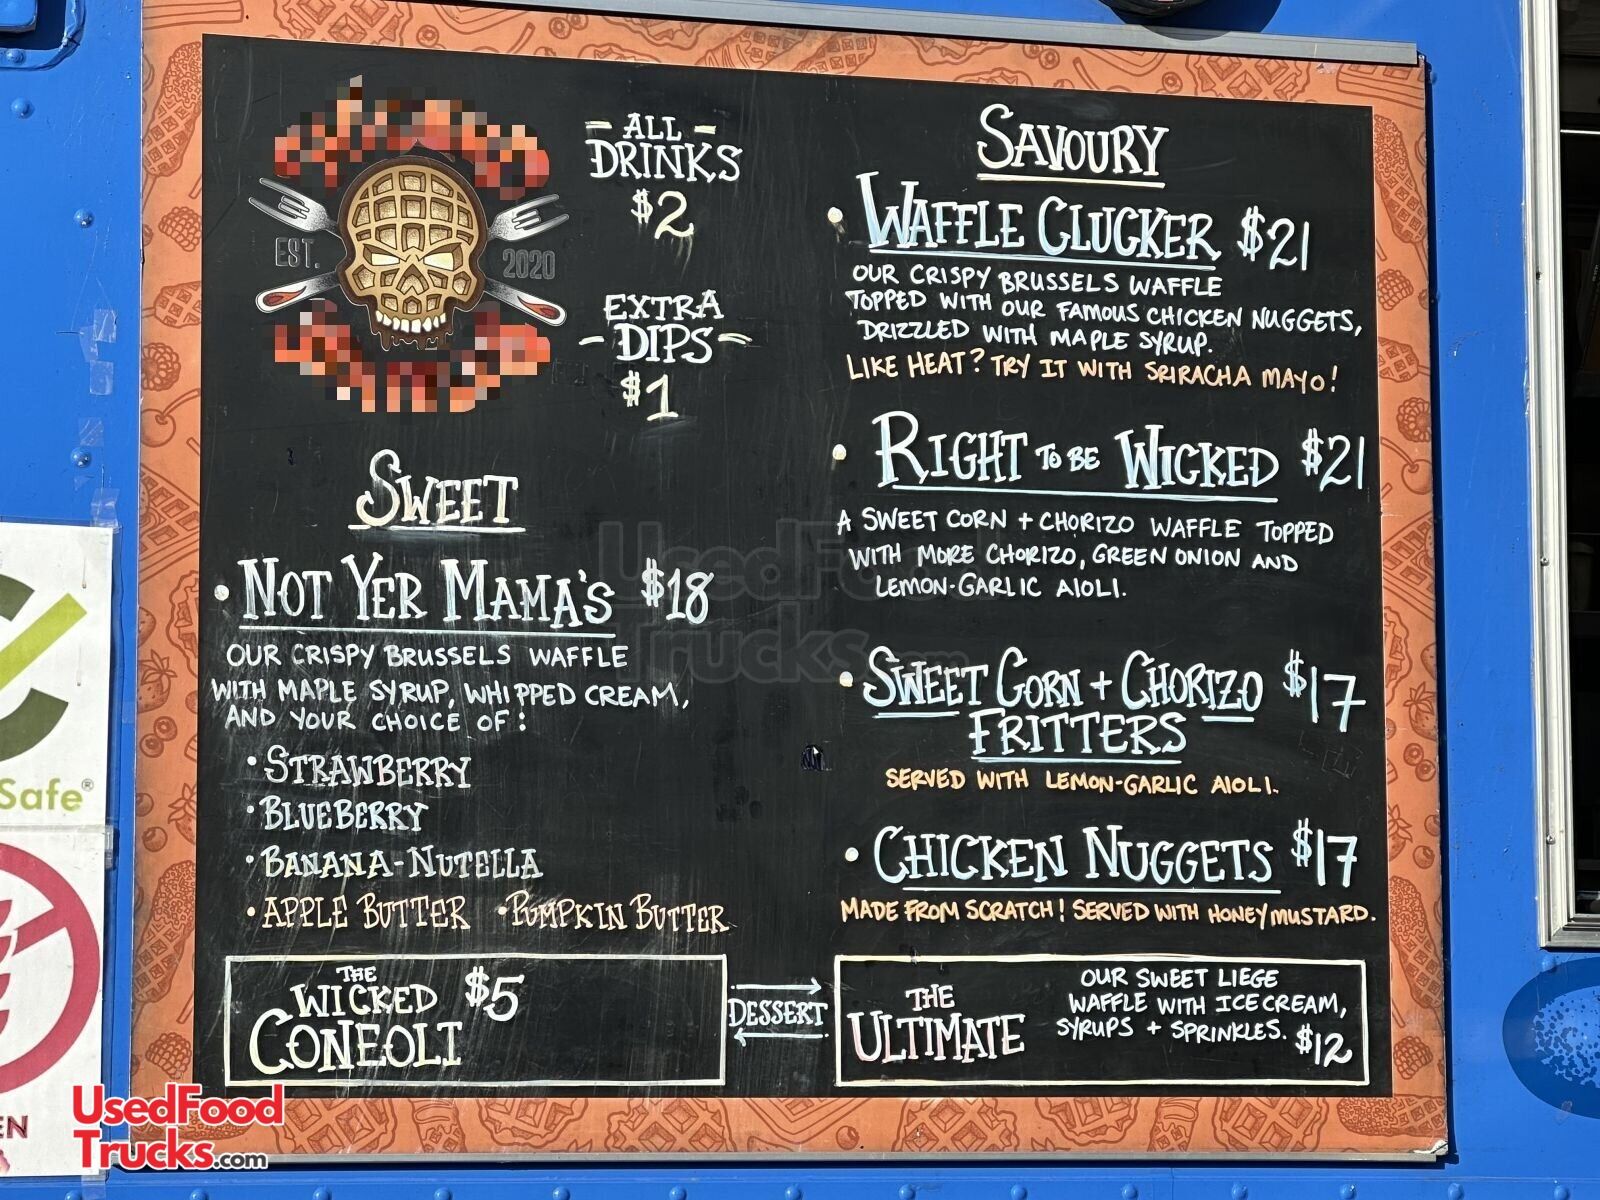 EST.
2020
- ALL -
DRINKS
$2
EXTRA
- DIPS -
$1
SWEET
• NOT YER MAMA'S $18
OUR CRISPY BRUSSELS WAFFLE
WITH MAPLE SYRUP, WHIPPED CREAM,
AND YOUR CHOICE OF:
• STRAWBERRY
• BLUEBERRY
• BANANA-NUTELLA
• APPLE BUTTER • PUMPKIN BUTTER
THE
WICKED $5
CONEOLI
DESSERT
SAVOURY
• WAFFLE CLUCKER $21
OUR CRISPY BRUSSELS WAFFLE
TOPPED WITH OUR FAMOUS CHICKEN NUGGETS,
DRIZZLED WITH MAPLE SYRUP.
LIKE HEAT? TRY IT WITH SRIRACHA MAYO!
• RIGHT TO BE WICKED $21
A SWEET CORN + CHORIZO WAFFLE TOPPED
WITH MORE CHORIZO, GREEN ONION AND
LEMON-GARLIC AIOLI.
• SWEET CORN + CHORIZO $17
FRITTERS
SERVED WITH LEMON-GARLIC AIOLI.
• CHICKEN NUGGETS $17
MADE FROM SCRATCH! SERVED WITH HONEY MUSTARD.
THE
ULTIMATE
OUR SWEET LIEGE
WAFFLE WITH ICE CREAM,
SYRUPS + SPRINKLES. $12
Safe®
EN
UsedFood
Trucks.com
UsedFood
Trucks.com